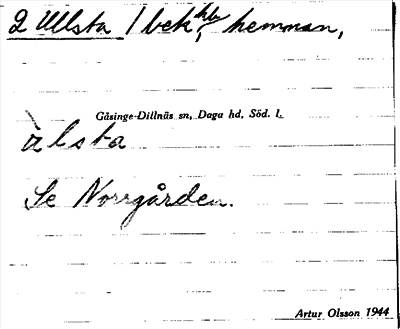 2 Ullsta / bek, hemman,
Gåsinge-Dillnäs sn, Daga hd, Söd. l.
ùlsta
Se Norrgården.
Artur Olsson 1944